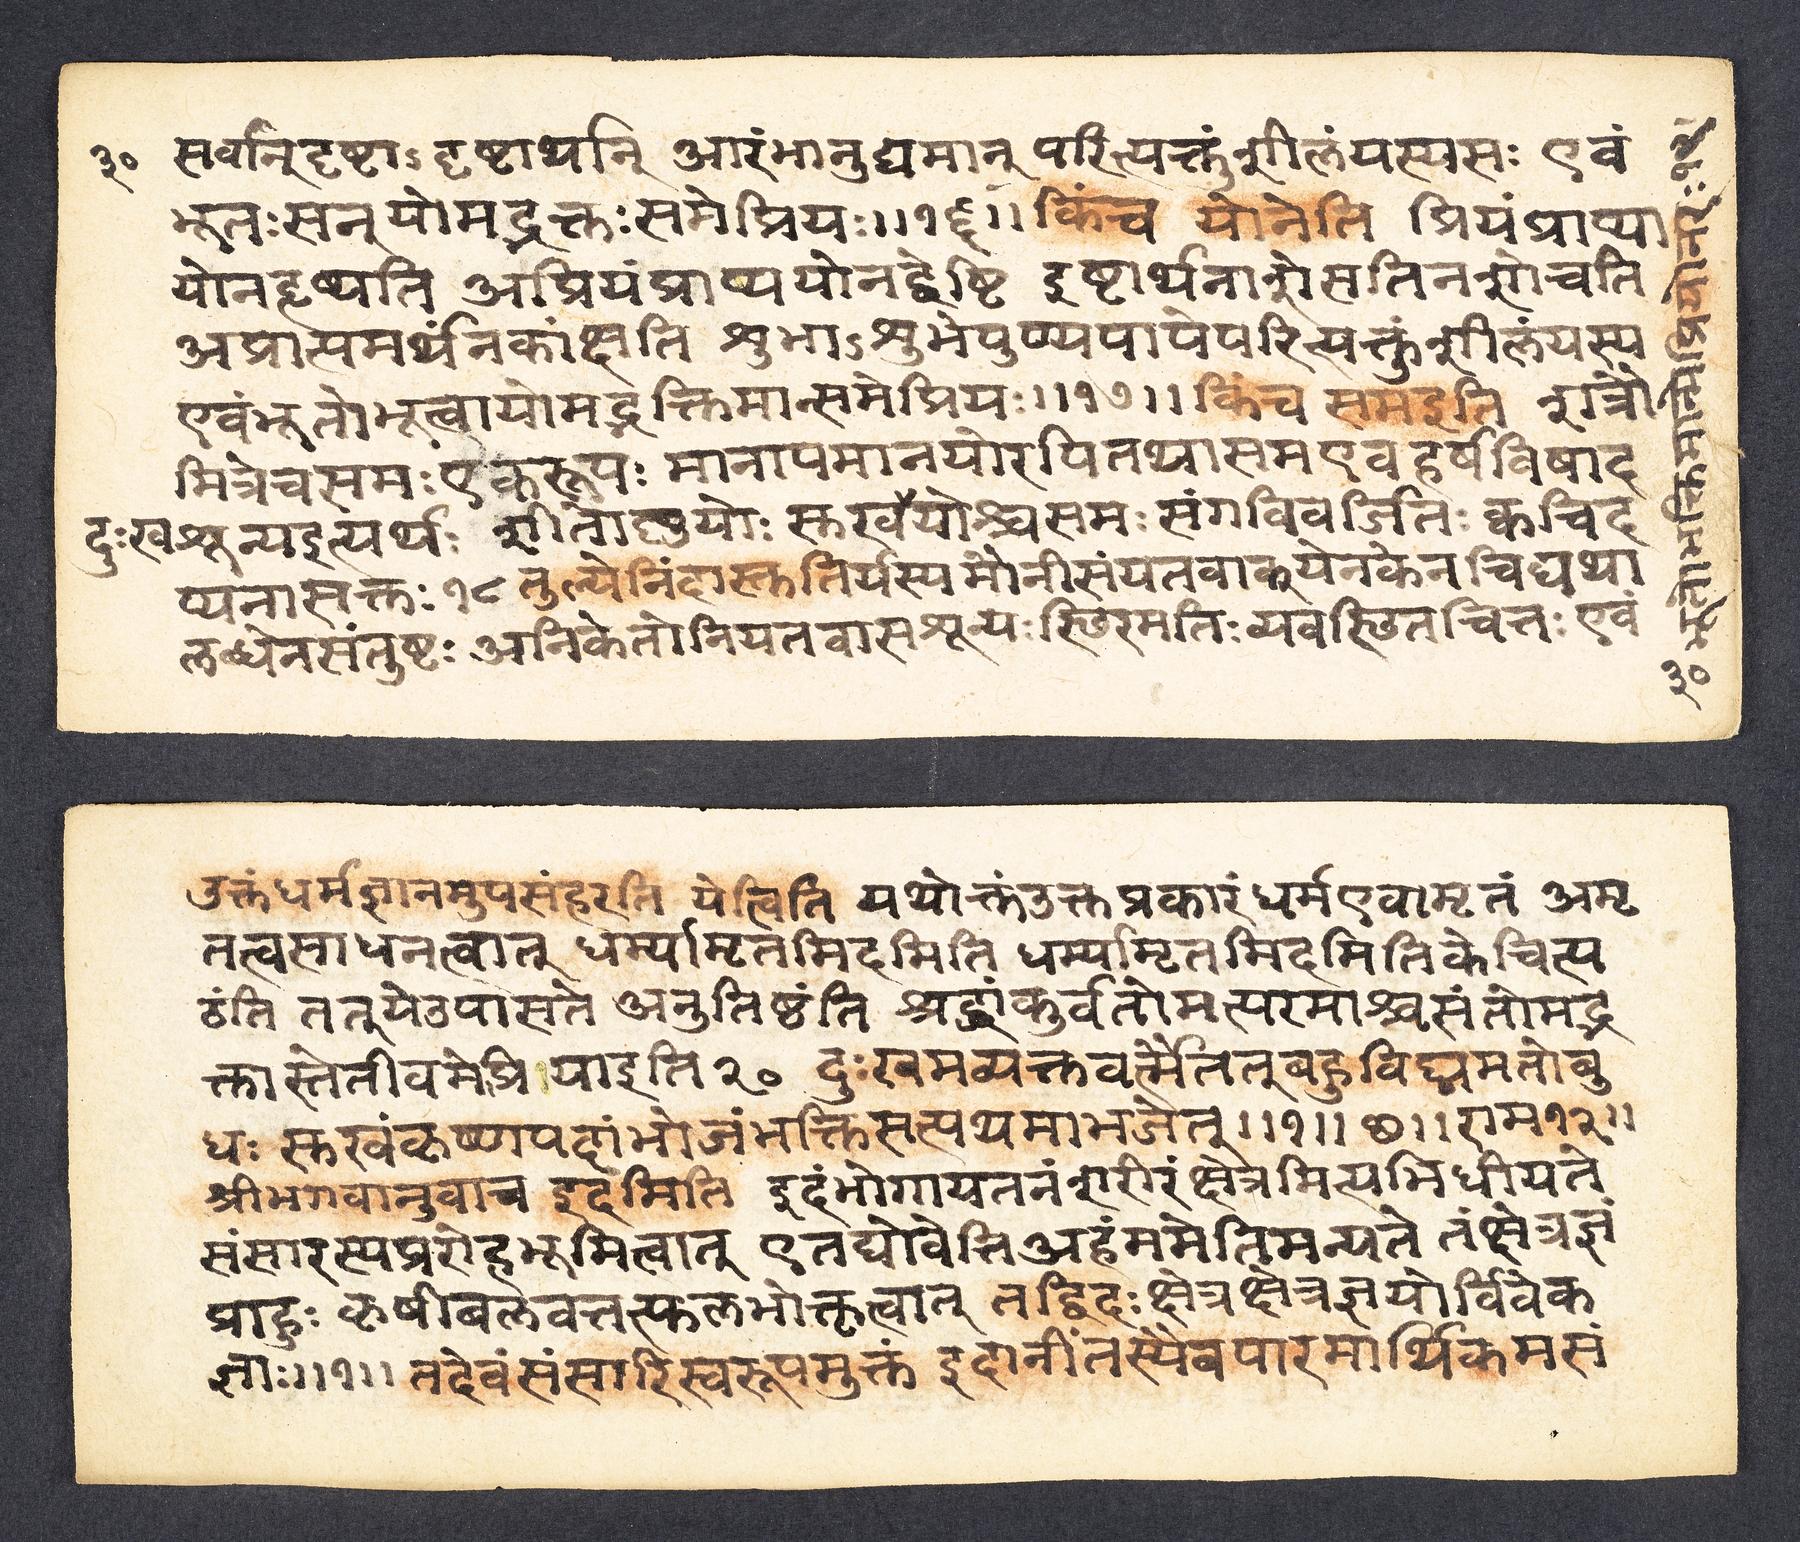 ३० सर्वान् दृष्टाऽदृष्टार्थान् आरंभानुद्यमान् परित्यक्तुं शीलं यस्य सः एवं
भूतः सन् यो मद्भक्तः स मे प्रियः ।।१६।। किंच यो नेति प्रियं प्राप्या
यो न हृष्यति अप्रियं प्राप्य यो न द्वेष्टि इष्टार्थनाशे सति न शोचति
अप्राप्तमर्थं न कांक्षति शुभाऽशुभे पुण्यपापे परित्यक्तुं शीलं यस्य
एवंभूतो भूत्वा यो मद्भक्तिमान्स मे प्रियः ।।१७।। किंच सम इति शत्रौ
मित्रे च समः एकरूपः मानापमानयोरपि तथा सम एव हर्षविषाद
दुःखशून्य इत्यर्थः शीतोष्णयोः सुखयोश्च समः संगविवर्जितः क्वचिद
प्यनासक्तः १८ तुल्येनिंदास्तुतिर्यस्य मौनी संयतवाक् येनकेनचिद्यथा
लब्धेन संतुष्टः अनिकेतो नियतवासशून्यः स्थिरमतिः व्यवस्थितचित्तः एवं
भूतो भक्तिमान् प्रियो नरः १९
३०
उक्तं धर्मज्ञानमुपसंहरति ये त्विति यथोक्तं उक्तप्रकारं धर्म एवामृतं अमृ
तत्वसाधनत्वात् धर्म्यामृतमिदमिति धर्म्यामृतमिदमिति केचित्प
ठंति तत् ये उपासते अनुतिष्ठंति श्रद्धां कुर्वंतो मत्परमाश्च संतो मद्भ
क्तास्तेतीव मे प्रिया इति २० दुःखमव्यक्तवर्त्मैतत् बहुविघ्नमतो बु
धः सुखं कृष्णपदांभोजं भक्तिसत्पथमाभजेत् ।।१।। छ ।। राम १२ ।।
श्रीभगवानुवाच इदमिति इदं भोगायतनं शरीरं क्षेत्रमित्यभिधीयते
संसारस्य प्ररोहभूमित्वात् एतद्यो वेत्ति अहं ममेति मन्यते तं क्षेत्रज्ञं
प्राहुः कृषीबलवत्तत्फलभोक्तृत्वात् तद्विदः क्षेत्रक्षेत्रज्ञयोर्विवेक
ज्ञाः ।।१।। तदेवं संसारिस्वरूपमुक्तं इदानीं तस्यैव पारमार्थिकमसं